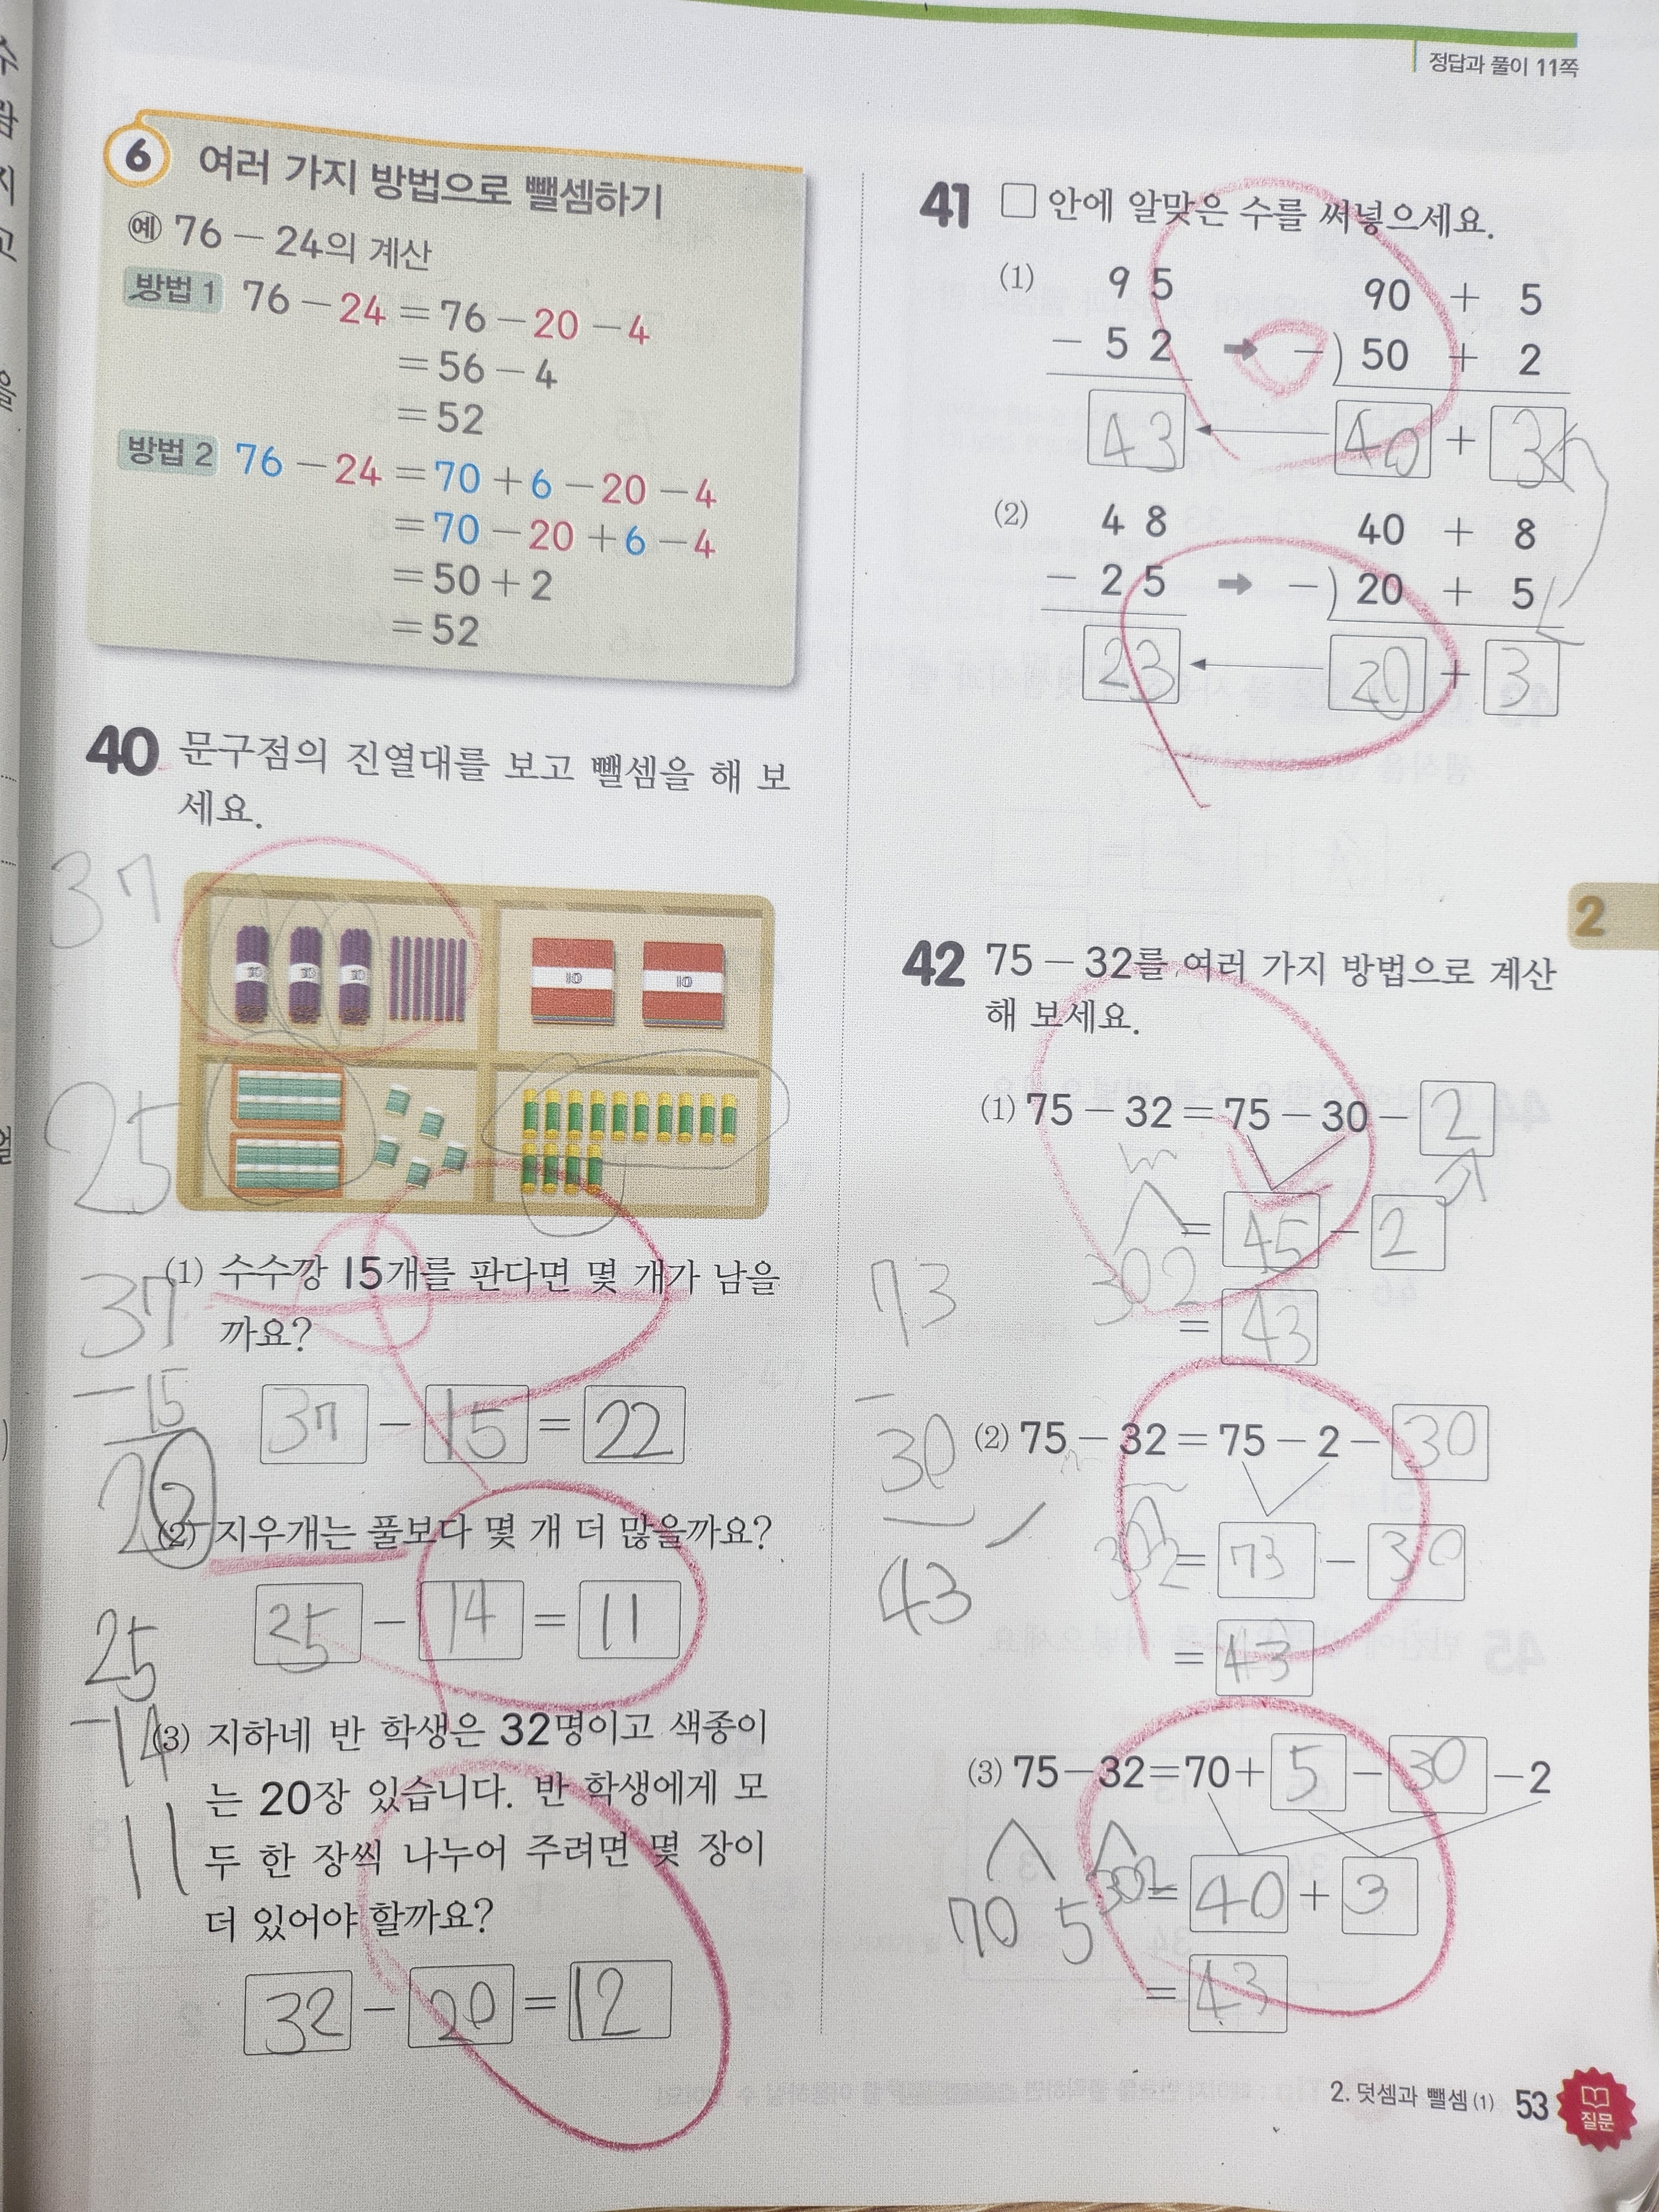 정답과 풀이 11쪽
6 여러 가지 방법으로 뺄셈하기
예 76-24의 계산
방법 1 76-24=76-20-4
=56-4
=52
방법 2 76-24=70+6-20-4
=70-20+6-4
=50+2
=52
40 문구점의 진열대를 보고 뺄셈을 해 보
세요.
37
10 10 10 10 10
25
(1) 수수깡 15개를 판다면 몇 개가 남을
까요?
37
-15
22
37 - 15 = 22
(2) 지우개는 풀보다 몇 개 더 많을까요?
25 - 14 = 11
25
-14
11
(3) 지하네 반 학생은 32명이고 색종이
는 20장 있습니다. 반 학생에게 모
두 한 장씩 나누어 주려면 몇 장이
더 있어야 할까요?
32 - 20 = 12
41 □ 안에 알맞은 수를 써넣으세요.
(1) 95 90 + 5
- 52 → -) 50 + 2
43 ← 40 + 3
(2) 48 40 + 8
- 25 → -) 20 + 5
23 ← 20 + 3
2
42 75-32를 여러 가지 방법으로 계산
해 보세요.
(1) 75-32=75-30-2
= 45 - 2
30 2
= 43
73
-
30
43
(2) 75-32=75-2-30
30 2 = 73 - 30
= 43
(3) 75-32=70+5-30-2
70 5 30 2 = 40 + 3
= 43
2. 덧셈과 뺄셈(1) 53
질문